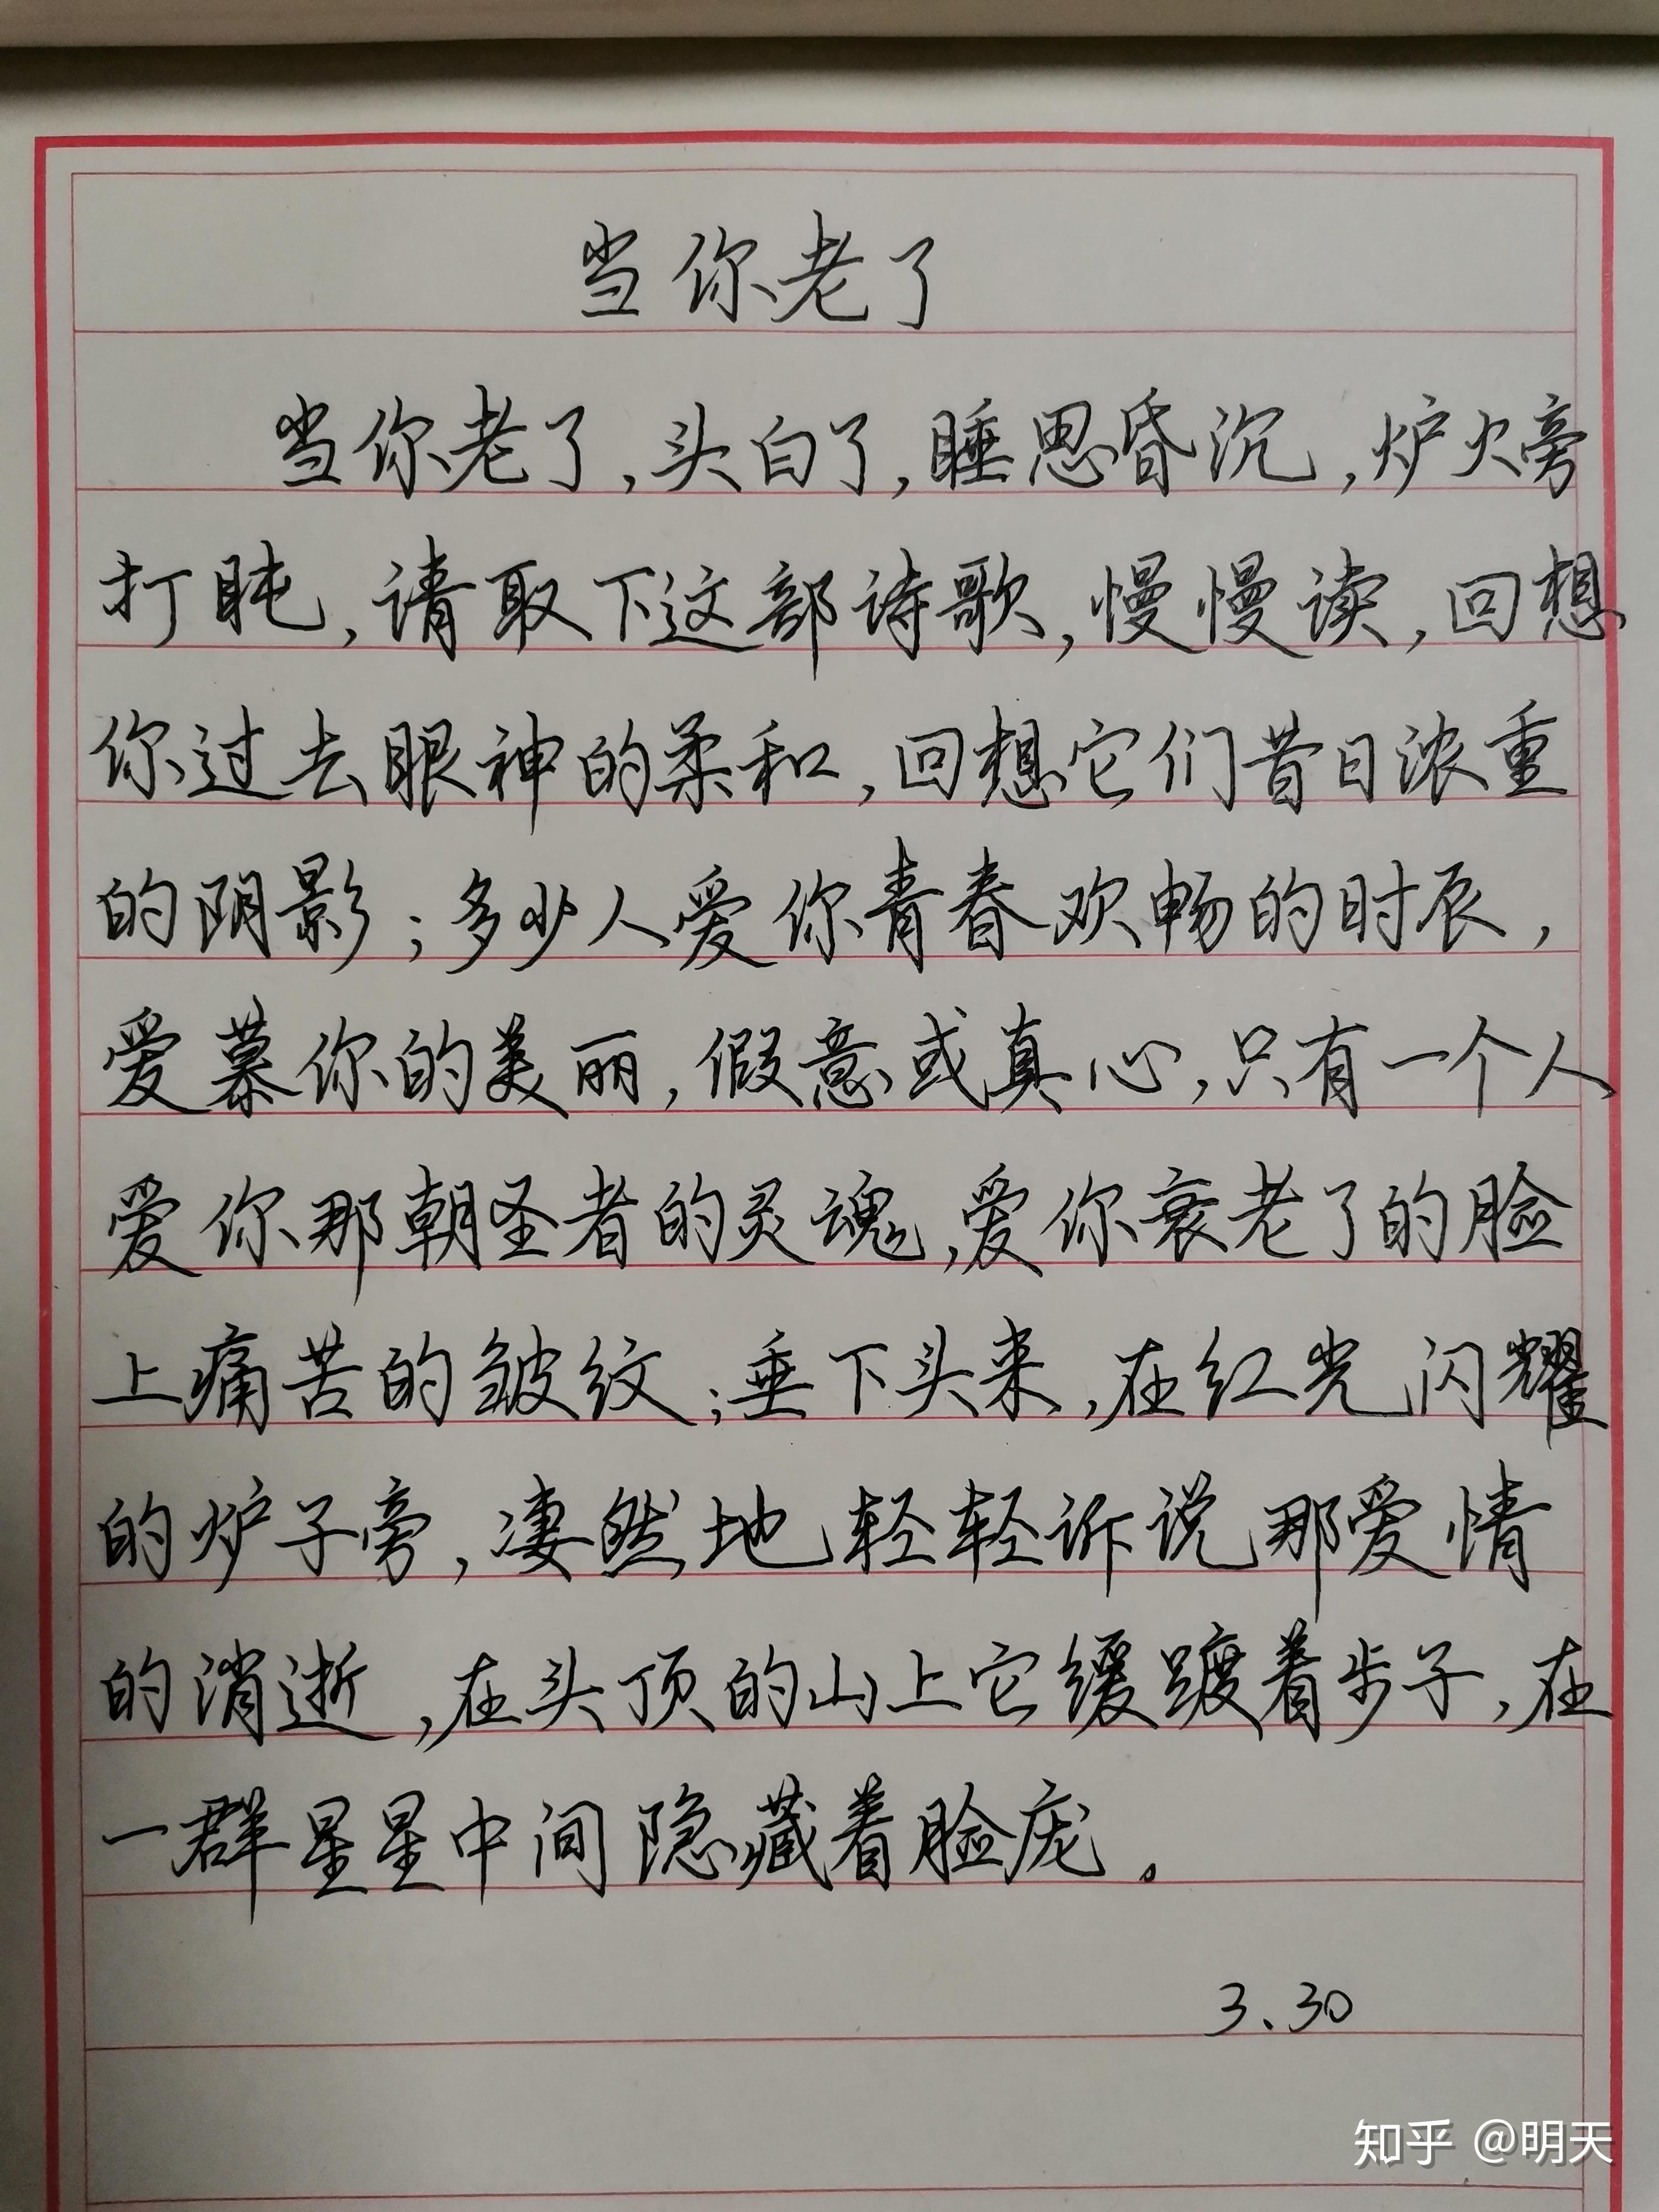 当你老了
当你老了,头白了,睡思昏沉,炉火旁
打盹,请取下这部诗歌,慢慢读,回想
你过去眼神的柔和,回想它们昔日浓重
的阴影;多少人爱你青春欢畅的时辰,
爱慕你的美丽,假意或真心,只有一个人
爱你那朝圣者的灵魂,爱你衰老了的脸
上痛苦的皱纹;垂下头来,在红光闪耀
的炉子旁,凄然地轻轻诉说那爱情
的消逝,在头顶的山上它缓踱着步子,在
一群星星中间隐藏着脸庞。
3.30
知乎 @明天